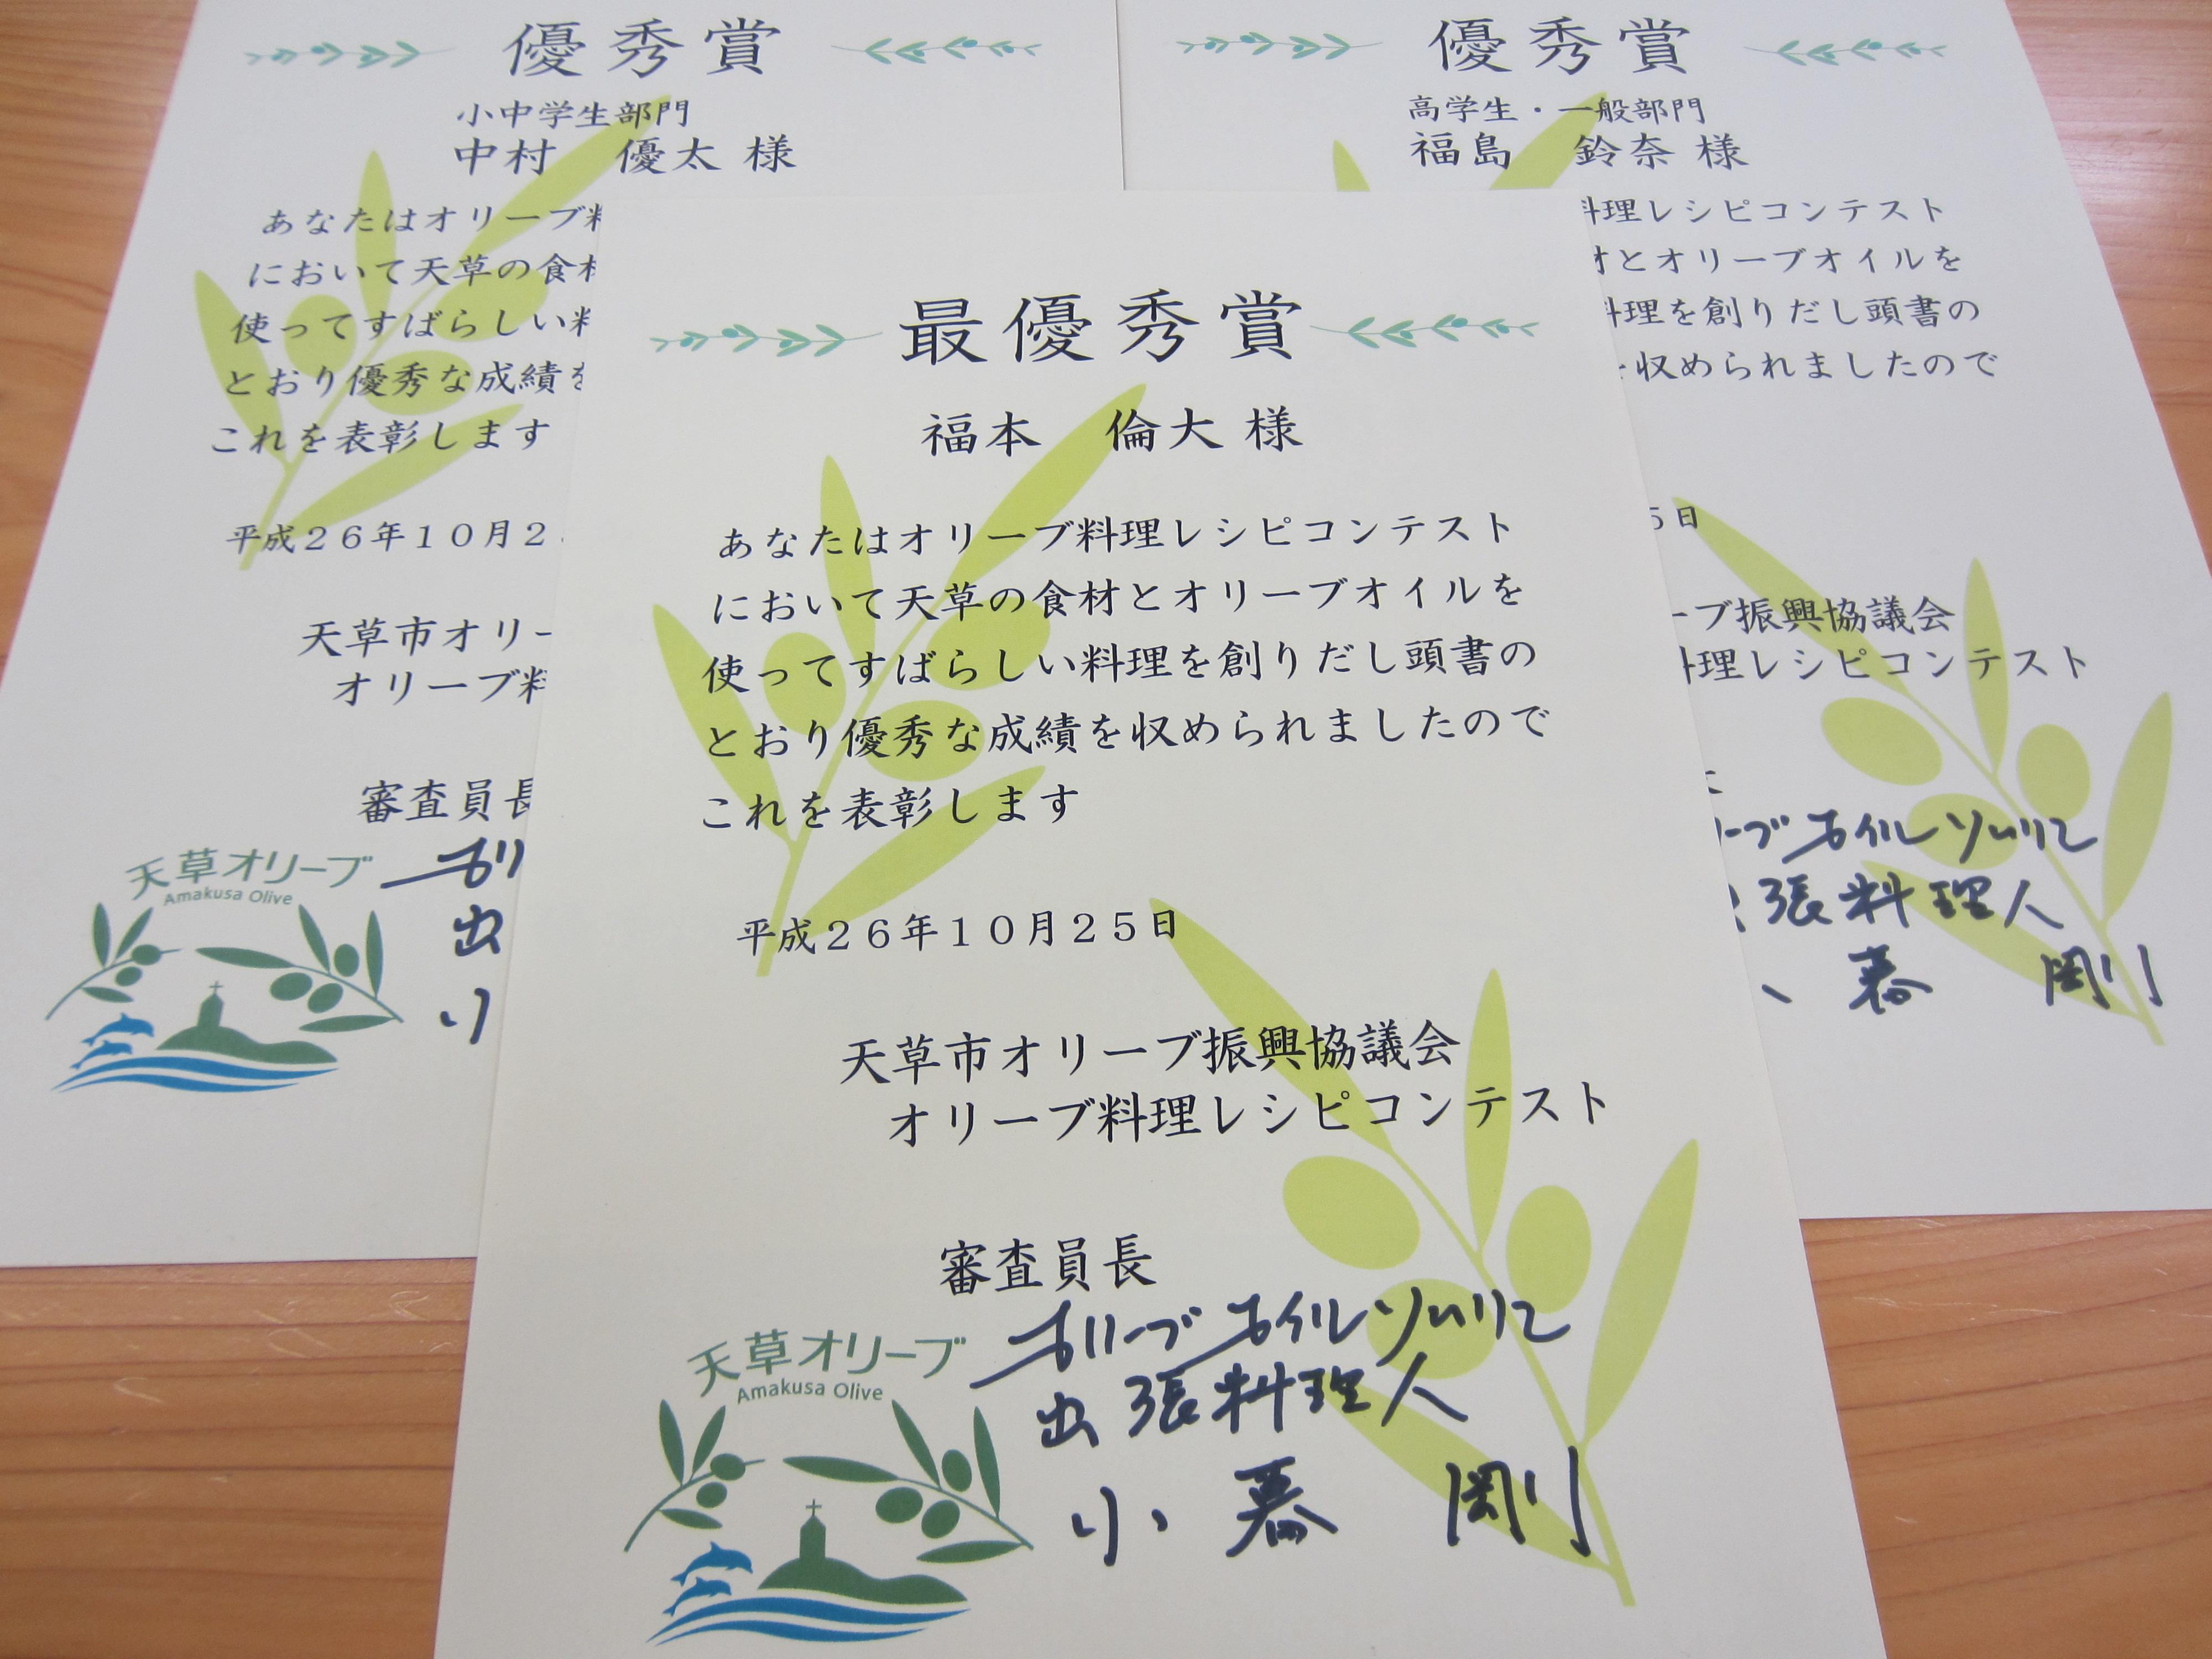 優秀賞
小中学生部門
中村　優太 様
あなたはオリーブ料
において天草の食材
使ってすばらしい料
とおり優秀な成績を
これを表彰します
平成２６年１０月２
天草市オリー
オリーブ料
審査員長
オリ
出
小
天草オリーブ
Amakusa Olive
優秀賞
高学生・一般部門
福島　鈴奈 様
料理レシピコンテスト
材とオリーブオイルを
料理を創りだし頭書の
を収められましたので
５日
ーブ振興協議会
料理レシピコンテスト
ーブオイルソムリエ
出張料理人
小暮　剛
最優秀賞
福本　倫大 様
あなたはオリーブ料理レシピコンテスト
において天草の食材とオリーブオイルを
使ってすばらしい料理を創りだし頭書の
とおり優秀な成績を収められましたので
これを表彰します
平成２６年１０月２５日
天草市オリーブ振興協議会
オリーブ料理レシピコンテスト
審査員長
オリーブオイルソムリエ
出張料理人
小暮　剛
天草オリーブ
Amakusa Olive